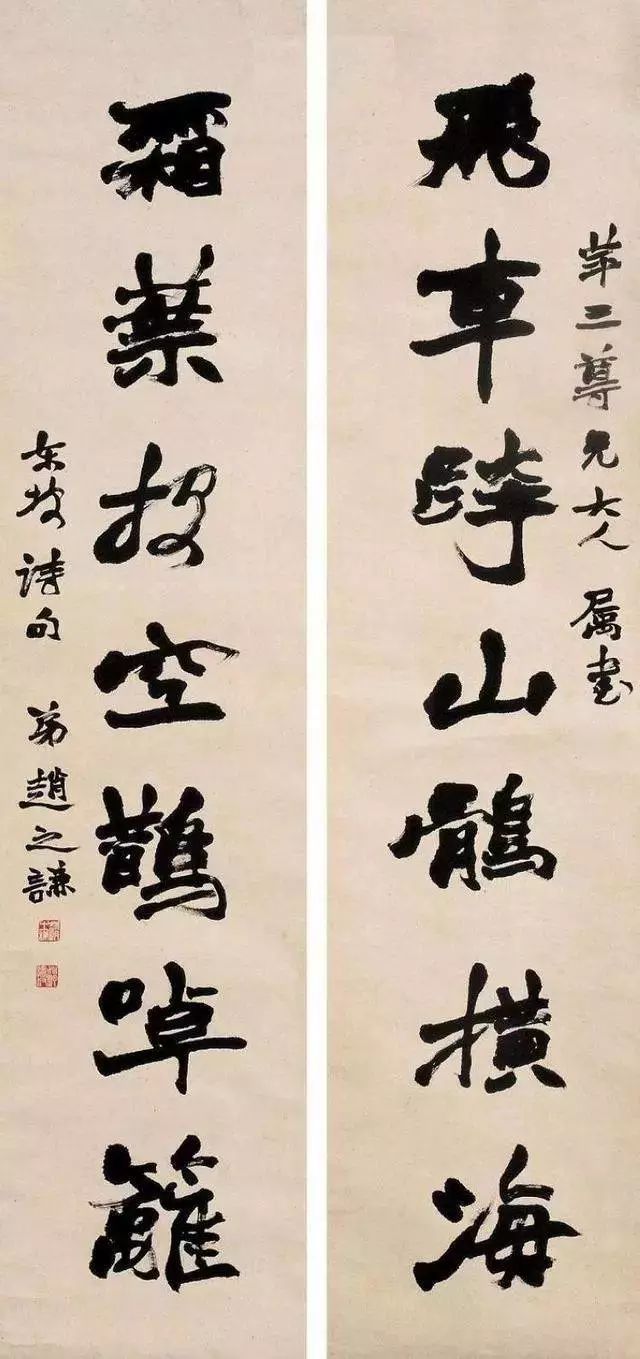 三尊兄大人 属書
飛車跨山鶻橫海
霜葉投空鵲啅籬
東坡詩句 弟趙之謙